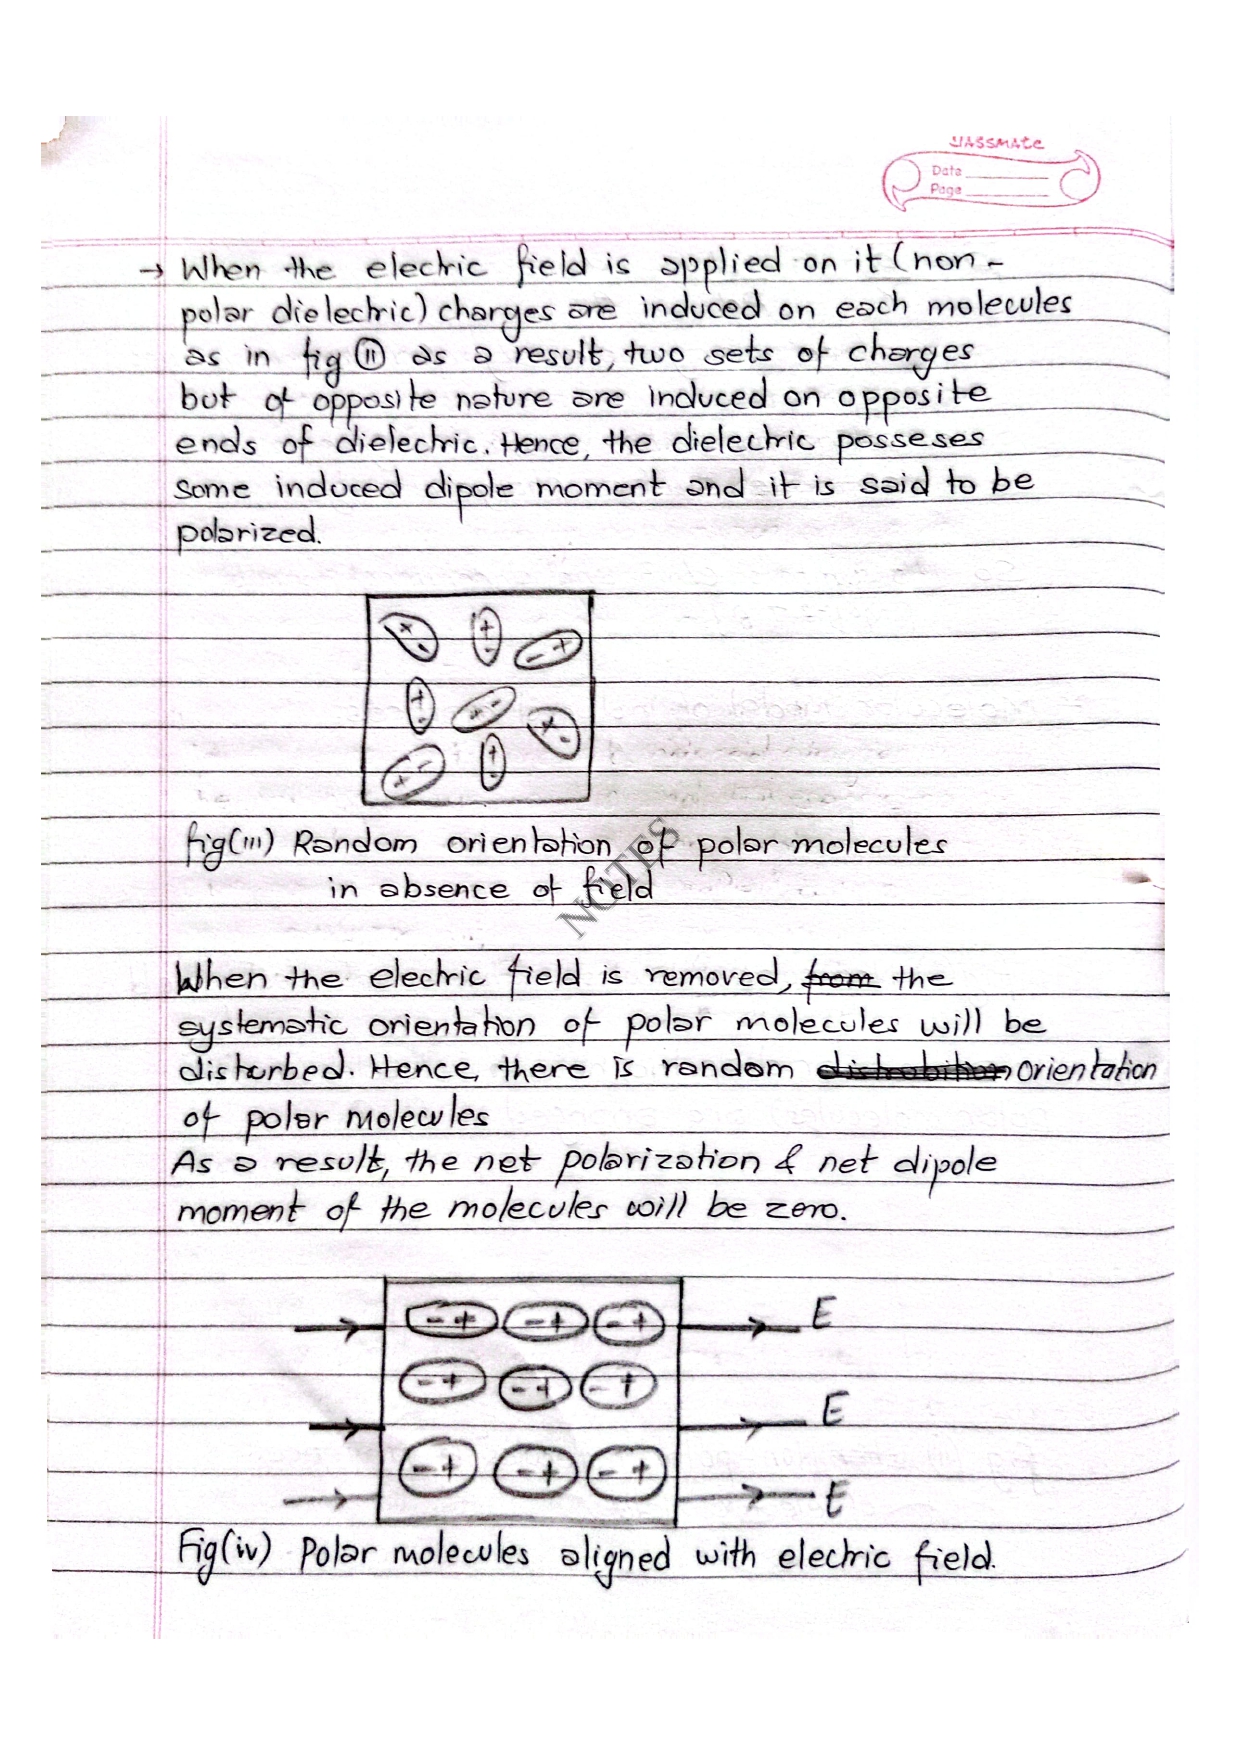 classmate
Date
Page
→ When the electric field is applied on it (non-
polar dielectric) charges are induced on each molecules
as in fig (ii) as a result, two sets of charges
but of opposite nature are induced on opposite
ends of dielectric. Hence, the dielectric posseses
some induced dipole moment and it is said to be
polarized.
fig(iii) Random orientation of polar molecules
in absence of field
NOTES
When the electric field is removed, from the
systematic orientation of polar molecules will be
disturbed. Hence, there is random distrubition orientation
of polar molecules
As a result, the net polarization & net dipole
moment of the molecules will be zero.
- + - + - + E
- + - + - + E
- + - + - + E
Fig(iv) Polar molecules aligned with electric field.